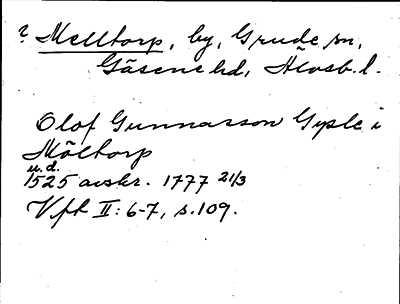 ? Melltorp, by, Grude sn,
Gäsene hd, Älvsb. l.
Olof Gunnarsson Gysle i
Mölltorp
u.d.
1525 avskr. 1777 21/3
Vft II: 6-7, s. 109.